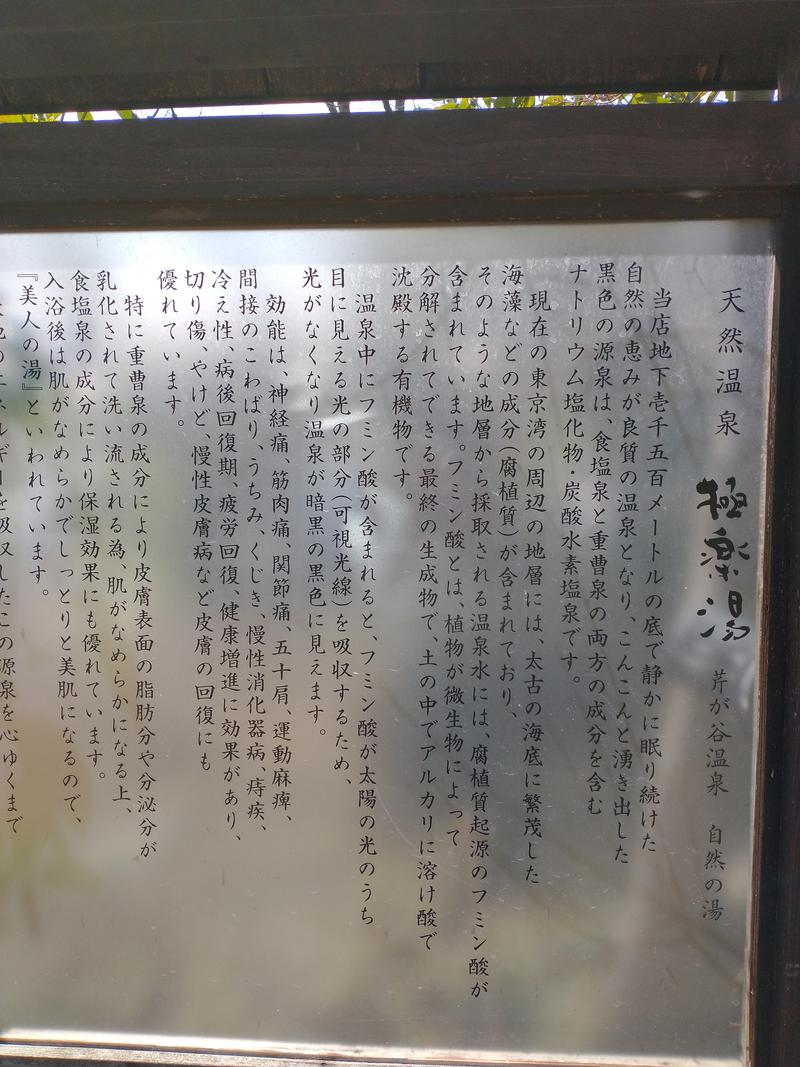 天然温泉 極楽湯 芹が谷温泉 自然の湯
当店地下壱千五百メートルの底で静かに眠り続けた
自然の恵みが良質の温泉となり、こんこんと湧き出した
黒色の源泉は、食塩泉と重曹泉の両方の成分を含む
ナトリウム塩化物・炭酸水素塩泉です。
現在の東京湾の周辺の地層には、太古の海底に繁茂した
海藻などの成分(腐植質)が含まれており、
そのような地層から採取される温泉水には、腐植質起源のフミン酸が
含まれています。フミン酸とは、植物が微生物によって
分解されてできる最終の生成物で、土の中でアルカリに溶け酸で
沈殿する有機物です。
温泉中にフミン酸が含まれると、フミン酸が太陽の光のうち
目に見える光の部分(可視光線)を吸収するため、
光がなくなり温泉が暗黒の黒色に見えます。
効能は、神経痛、筋肉痛、関節痛、五十肩、運動麻痺、
間接のこわばり、うちみ、くじき、慢性消化器病、痔疾、
冷え性、病後回復期、疲労回復、健康増進に効果があり、
切り傷、やけど、慢性皮膚病など皮膚の回復にも
優れています。
特に重曹泉の成分により皮膚表面の脂肪分や分泌分が
乳化されて洗い流される為、肌がなめらかになる上、
食塩泉の成分により保湿効果にも優れています。
入浴後は肌がなめらかでしっとりと美肌になるので、
『美人の湯』といわれています。
のエネルギーを吸収したこの源泉を心ゆくまで